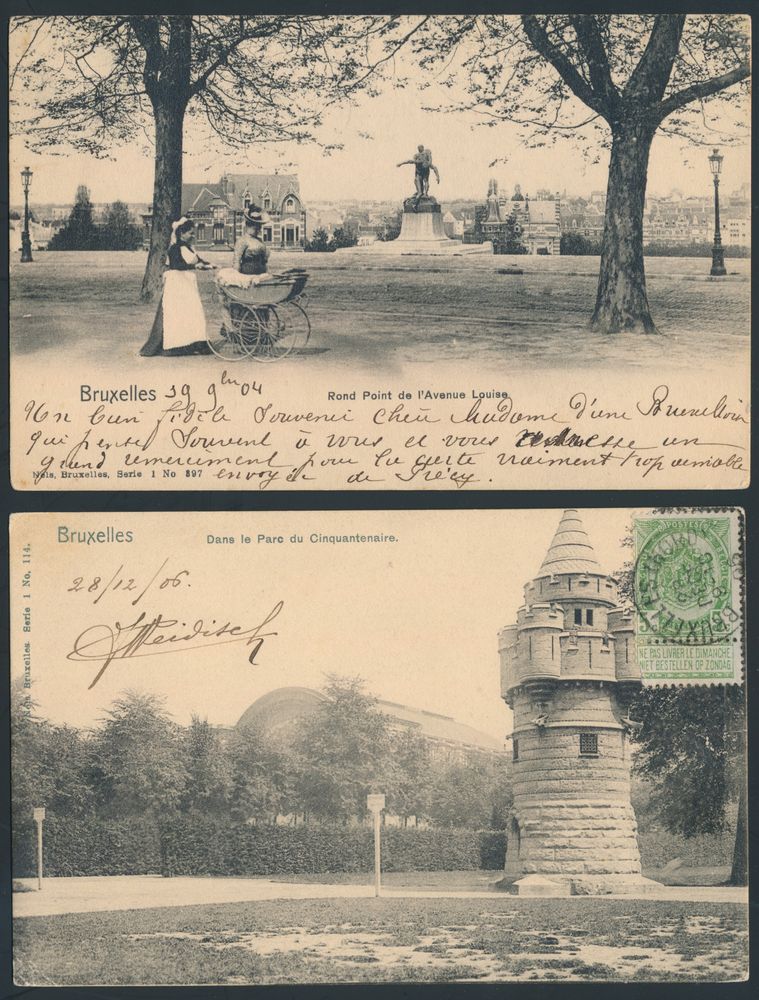 Bruxelles 29 9bre 04
Rond Point de l'Avenue Louise
Un bien fidèle Souvenir chère Madame d'une Bruxelloise
qui pense Souvent à vous et vous un
grand remerciment pour la carte vraiment trop aimable
Nels, Bruxelles, Serie 1 No 397
envoyée de
Bruxelles
Dans le Parc du Cinquantenaire.
28/12/06.
Bruxelles Serie 1 No. 114.
POSTES
NE PAS LIVRER LE DIMANCHE
NIET BESTELLEN OP ZONDAG